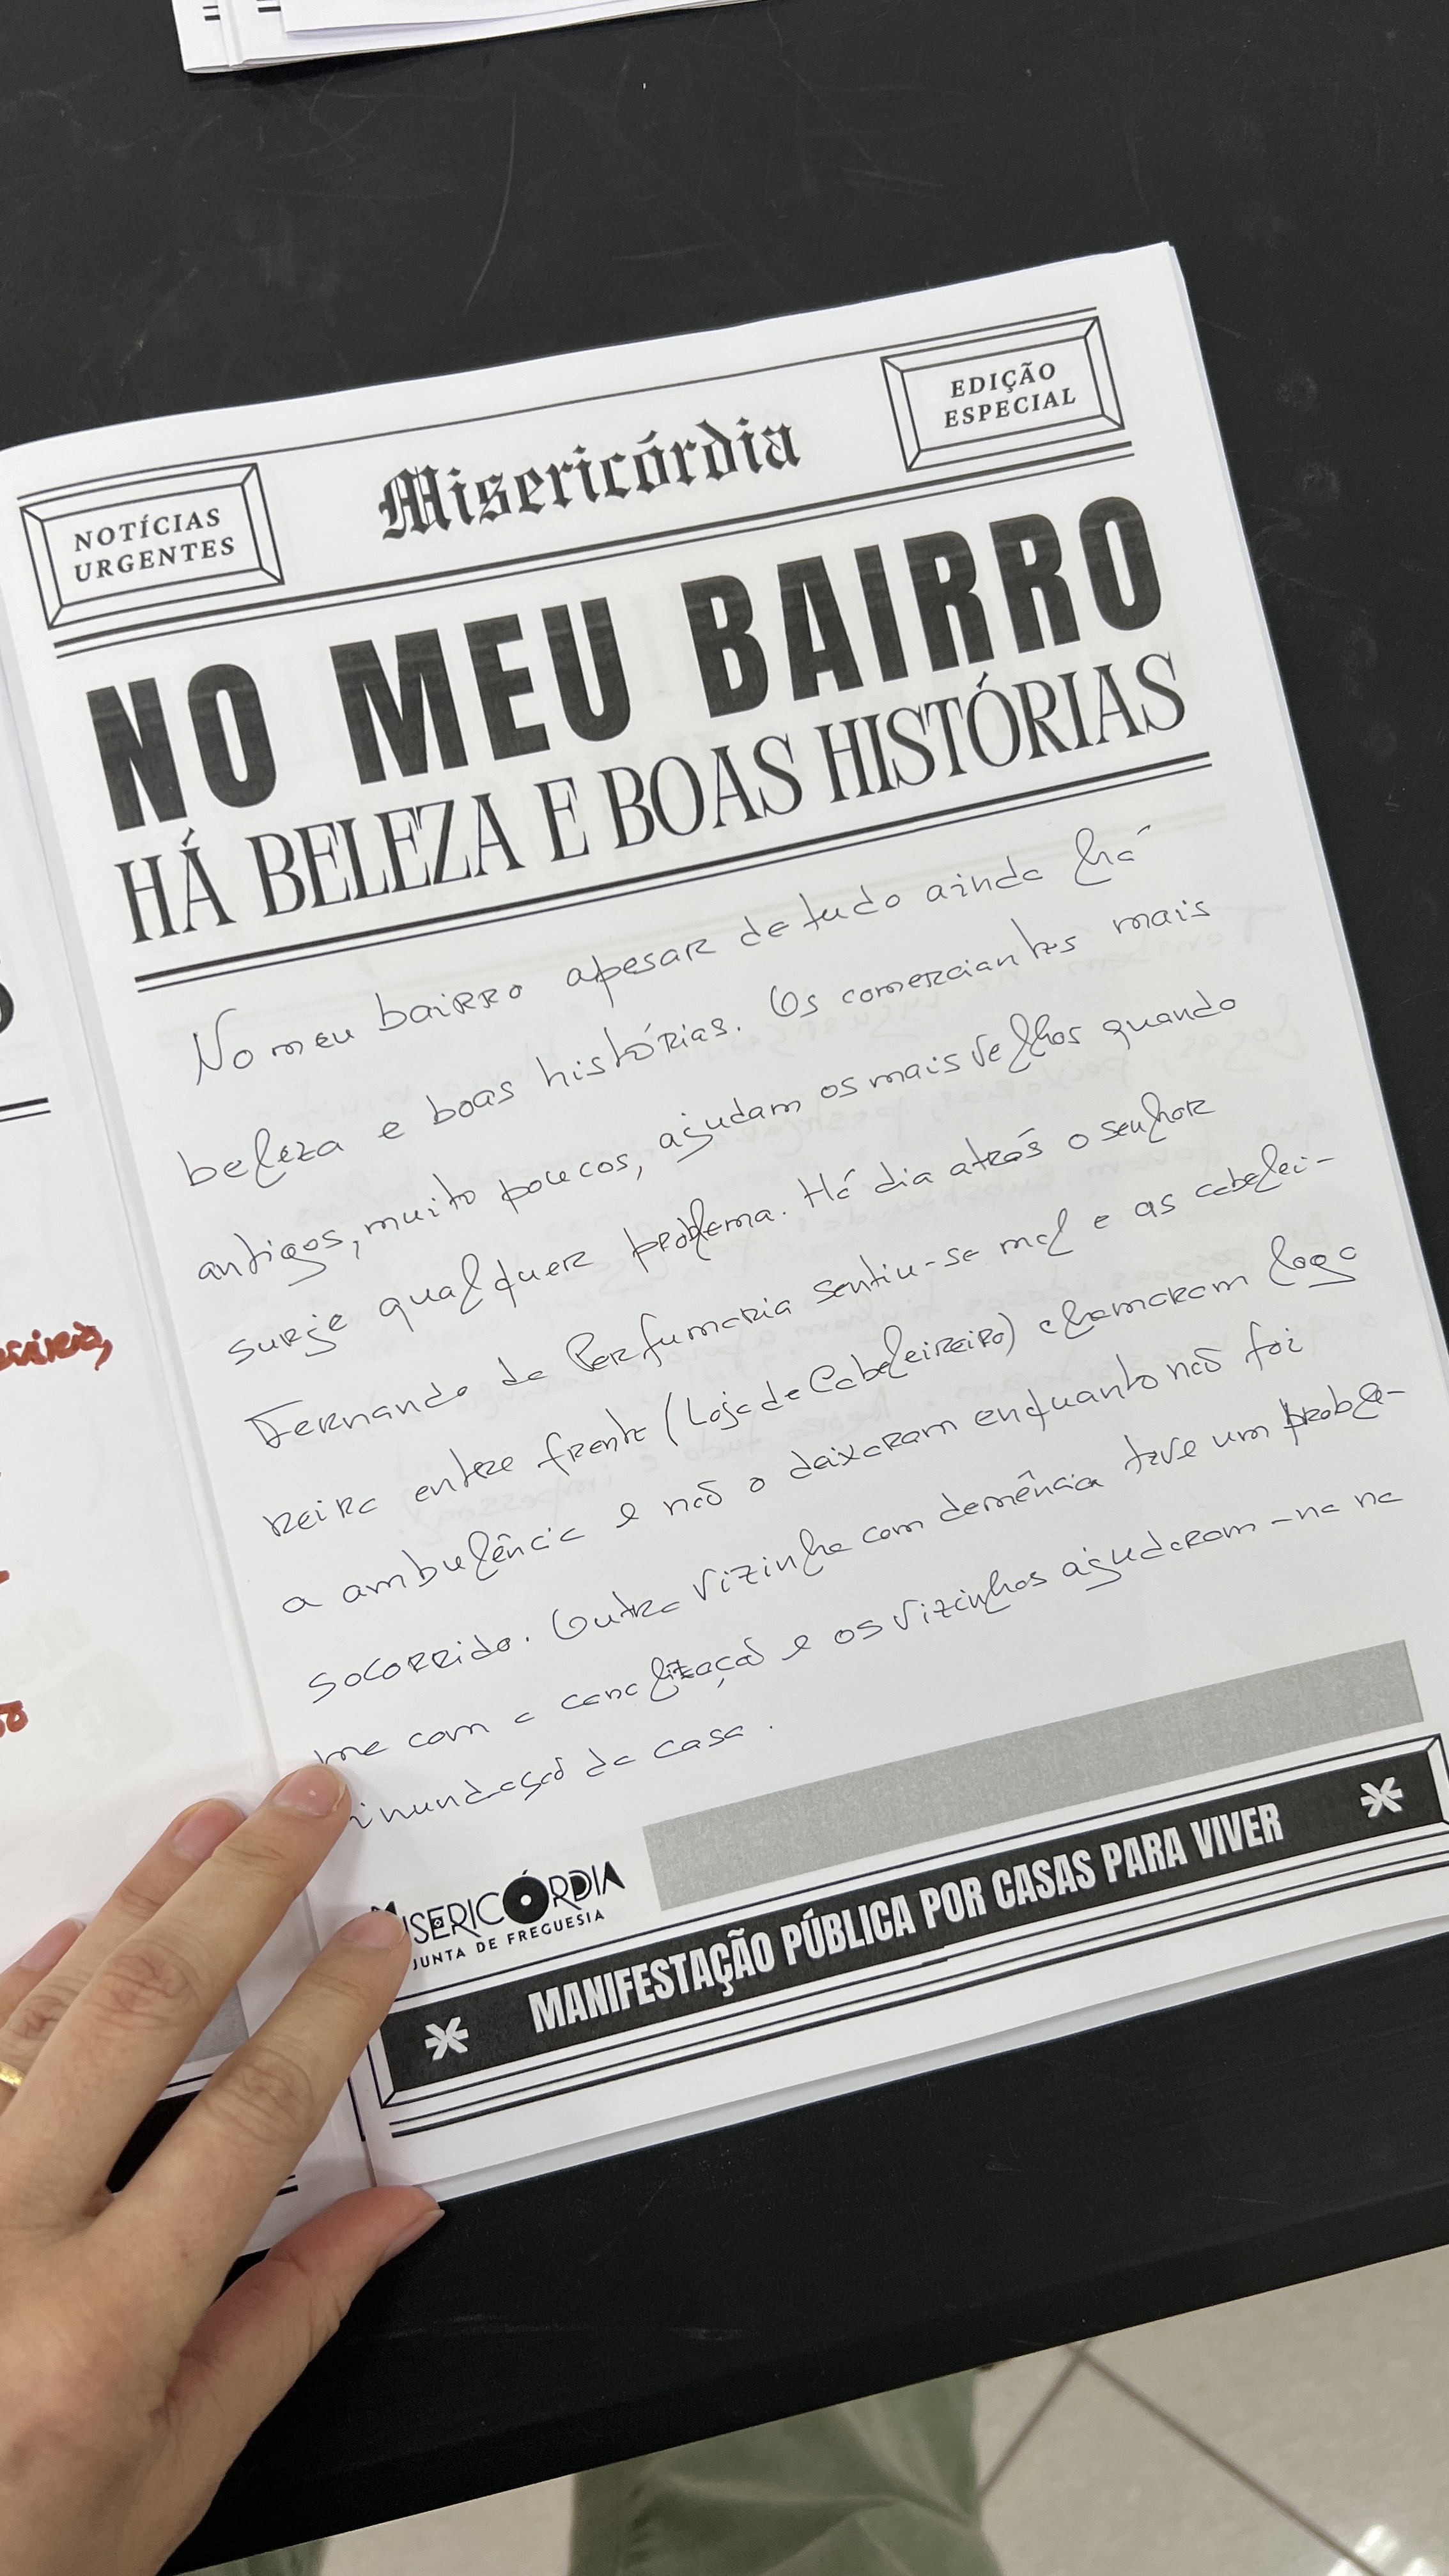 NOTÍCIAS
URGENTES
Misericórdia
EDIÇÃO
ESPECIAL
NO MEU BAIRRO
HÁ BELEZA E BOAS HISTÓRIAS
No meu bairro apesar de tudo ainda há
beleza e boas histórias. Os comerciantes mais
antigos, muito poucos, ajudam os mais velhos quando
surje qualquer problema. Há dia atrás o senhor
Fernando da Perfumaria sentiu-se mal e as cabelei-
reira entre frente (Loja de Cabeleireiro) chamaram logo
a ambulância e não o deixaram enquanto não foi
socorrido. Outra vizinha com demência teve um proble-
me com a canalização e os vizinhos ajudaram-na na
inundação da casa.
MISERICÓRDIA
JUNTA DE FREGUESIA
MANIFESTAÇÃO PÚBLICA POR CASAS PARA VIVER